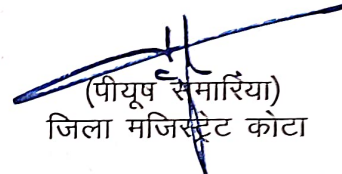 (पीयूष समारिया)
जिला मजिस्ट्रेट कोटा